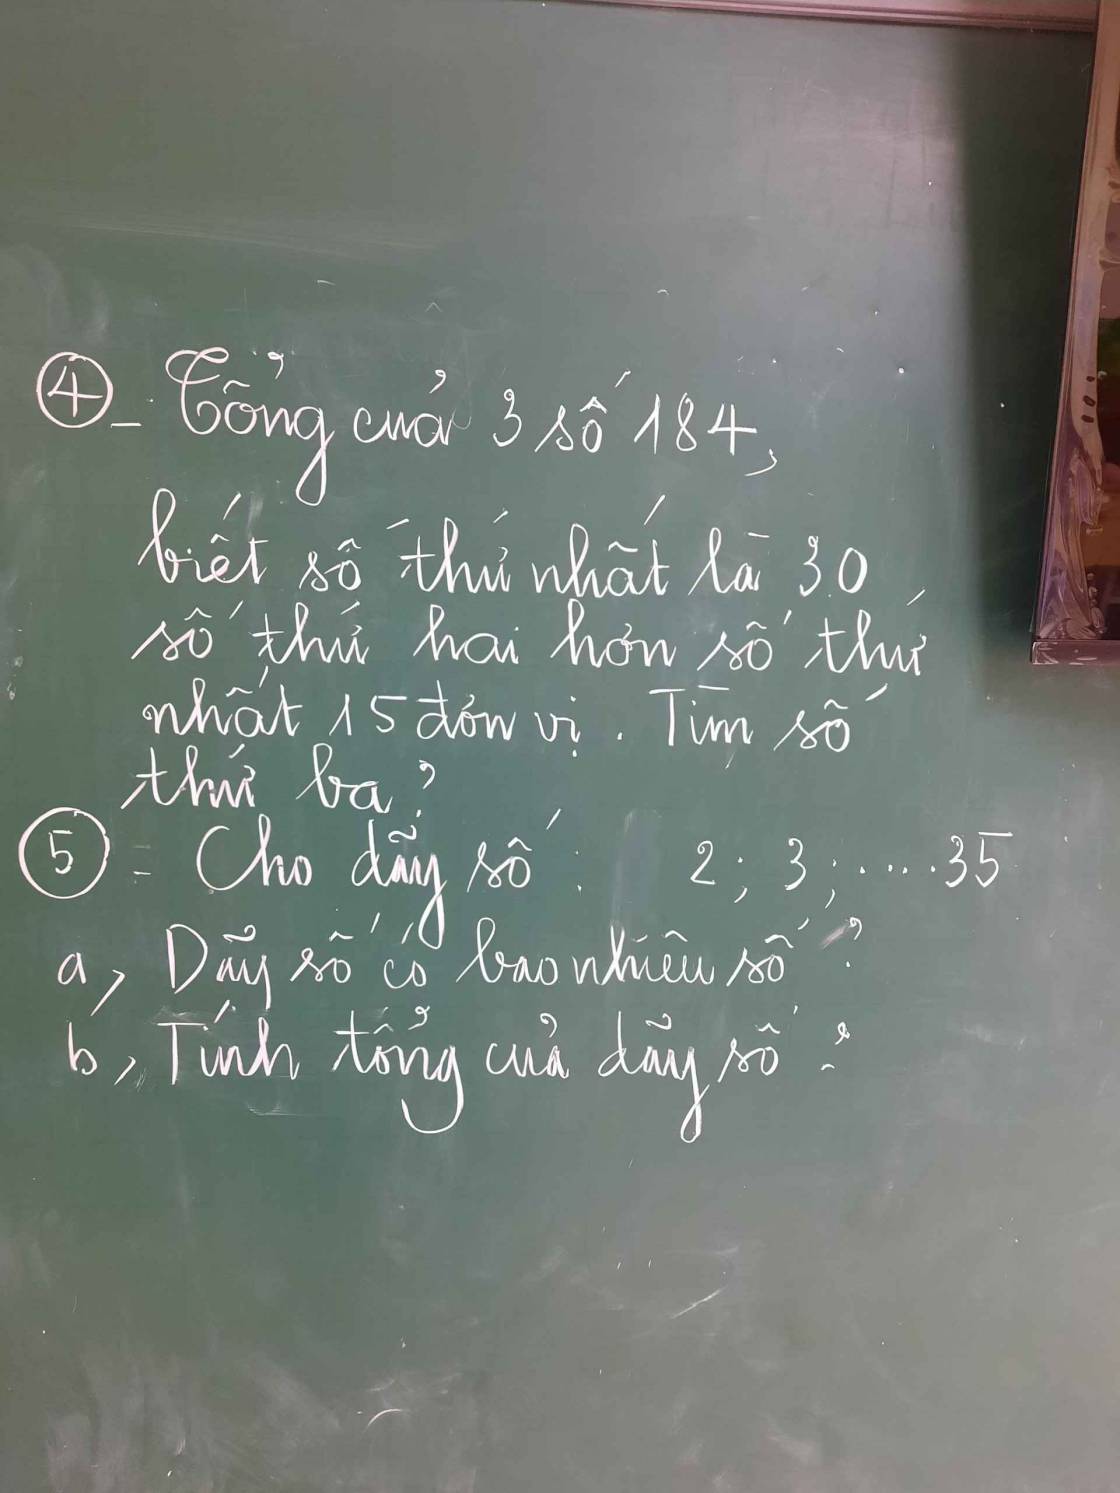 ④ - Tổng của 3 số 184,
biết số thứ nhất là 30
số thứ hai hơn số thứ
nhất 15 đơn vị. Tìm số
thứ ba?
⑤ - Cho dãy số: 2; 3; ....35
a, Dãy số có bao nhiêu số?
b, Tính tổng của dãy số?